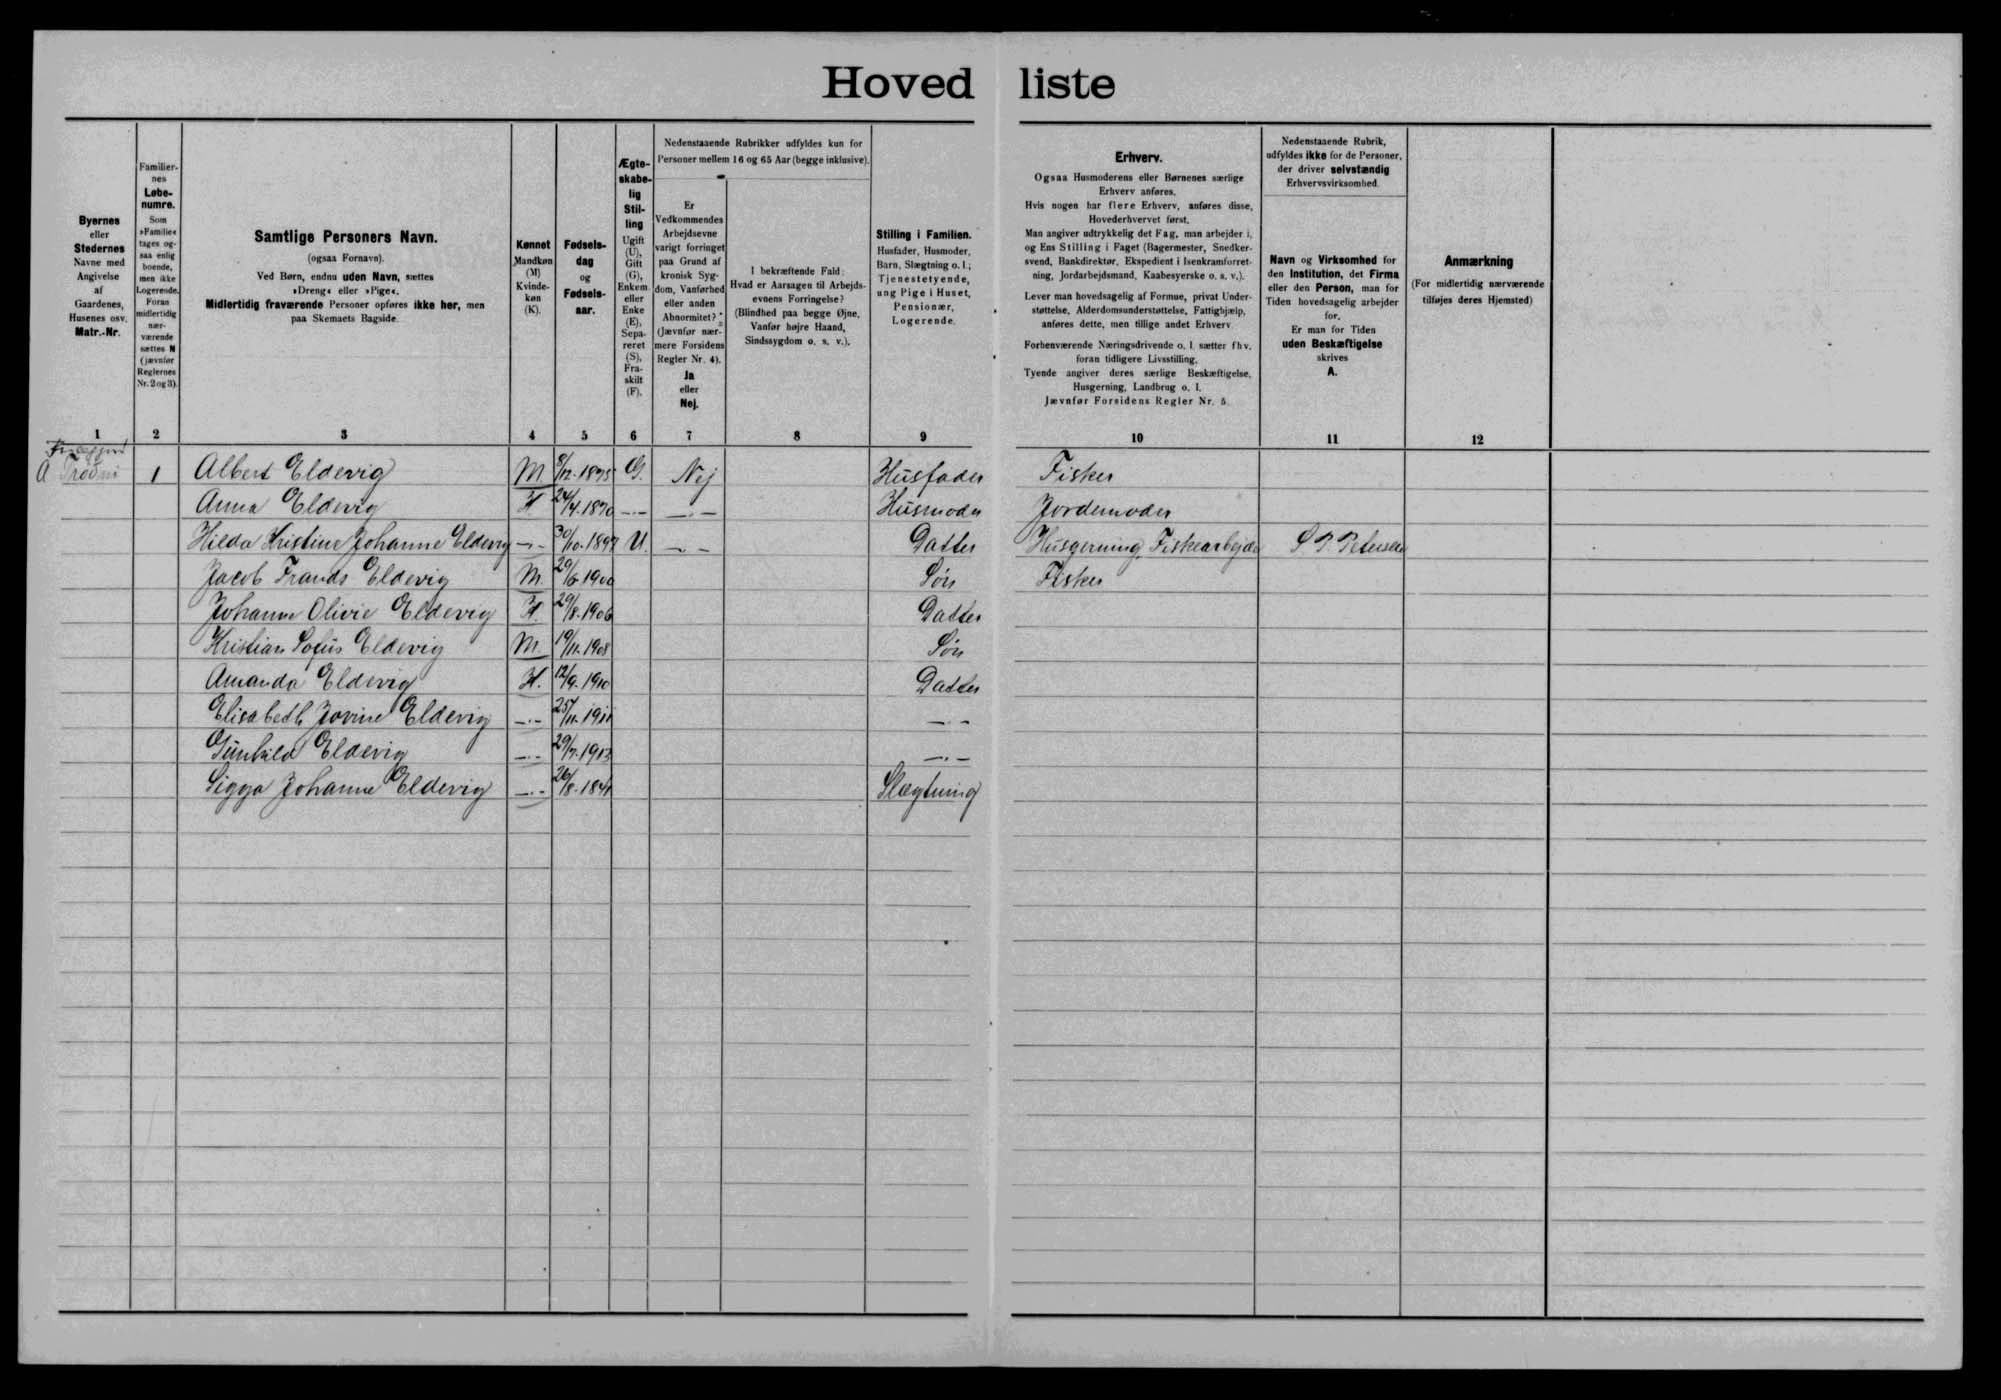 Hoved liste
Byernes
eller
Stedernes
Navne med
Angivelse
af
Gaardenes,
Husenes osv.
Matr.-Nr.
Familier-
nes
Løbe-
numre.
Som
»Familie«
tages og-
saa enlig
boende,
men ikke
Logerende.
Foran
midlertidig
nær-
værende
sættes N
(jævnfør
Reglernes
Nr. 2 og 3).
Samtlige Personers Navn.
(ogsaa Fornavn).
Ved Børn, endnu uden Navn, sættes
»Dreng« eller »Pige«.
Midlertidig fraværende Personer opføres ikke her, men
paa Skemaets Bagside.
Kønnet
Mandkøn
(M)
Kvinde-
køn
(K).
Fødsels-
dag
og
Fødsels-
aar.
Ægte-
skabe-
lig
Stil-
ling
Ugift
(U),
Gift
(G),
Enkem.
eller
Enke
(E),
Sepa-
reret
(S),
Fra-
skilt
(F).
Nedenstaaende Rubrikker udfyldes kun for
Personer mellem 16 og 65 Aar (begge inklusive).
Er
Vedkommendes
Arbejdsevne
varigt forringet
paa Grund af
kronisk Syg-
dom, Vanførhed
eller anden
Abnormitet?
(Jævnfør nær-
mere Forsidens
Regler Nr. 4).
Ja
eller
Nej.
I bekræftende Fald:
Hvad er Aarsagen til Arbejds-
evnens Forringelse?
(Blindhed paa begge Øjne,
Vanfør højre Haand,
Sindssygdom o. s. v.).
Stilling i Familien.
Husfader, Husmoder,
Barn, Slægtning o. l.;
Tjenestetyende,
ung Pige i Huset,
Pensionær,
Logerende.
Erhverv.
Ogsaa Husmoderens eller Børnenes særlige
Erhverv anføres.
Hvis nogen har flere Erhverv, anføres disse,
Hovederhvervet først.
Man angiver udtrykkelig det Fag, man arbejder i,
og Ens Stilling i Faget (Bagermester, Snedker-
svend, Bankdirektør, Ekspedient i Isenkramforret-
ning, Jordarbejdsmand, Kaabesyerske o. s. v.).
Lever man hovedsagelig af Formue, privat Under-
støttelse, Alderdomsunderstøttelse, Fattighjælp,
anføres dette, men tillige andet Erhverv.
Forhenværende Næringsdrivende o. l. sætter fhv.
foran tidligere Livsstilling.
Tyende angiver deres særlige Beskæftigelse,
Husgerning, Landbrug o. l.
Jævnfør Forsidens Regler Nr. 5.
Nedenstaaende Rubrik,
udfyldes ikke for de Personer,
der driver selvstændig
Erhvervsvirksomhed.
Navn og Virksomhed for
den Institution, det Firma
eller den Person, man for
Tiden hovedsagelig arbejder
for.
Er man for Tiden
uden Beskæftigelse
skrives
A.
Anmærkning
(For midlertidig nærværende
tilføjes deres Hjemsted)
1 2 3 4 5 6 7 8 9 10 11 12
1 Albert Eldevig M 8/12-1875 G. Nej Husfader Fisker
Anna Eldevig K 24/4-1870 -.- -.- Husmoder Jordemoder
Hilda Kristine Johanne Eldevig -.- 30/10-1897 U. -.- Datter Husgerning, Fiskearbejde S. P. Petersen
Jacob Frands Eldevig M 1900 Søn Fisker
Johanne Olivie Eldevig K. 29/8-1906 Datter
Kristian Sofus Eldevig M. 19/11-1908 Søn
Amanda Eldevig K. 12/9-1910 Datter
Elisabeth Jovine Eldevig -.- 25/11-1911 -.-
Gunhild Eldevig -.- 29/7-1913 -.-
Sigga Johanne Eldevig -.- 26/8-1841 Slægtning